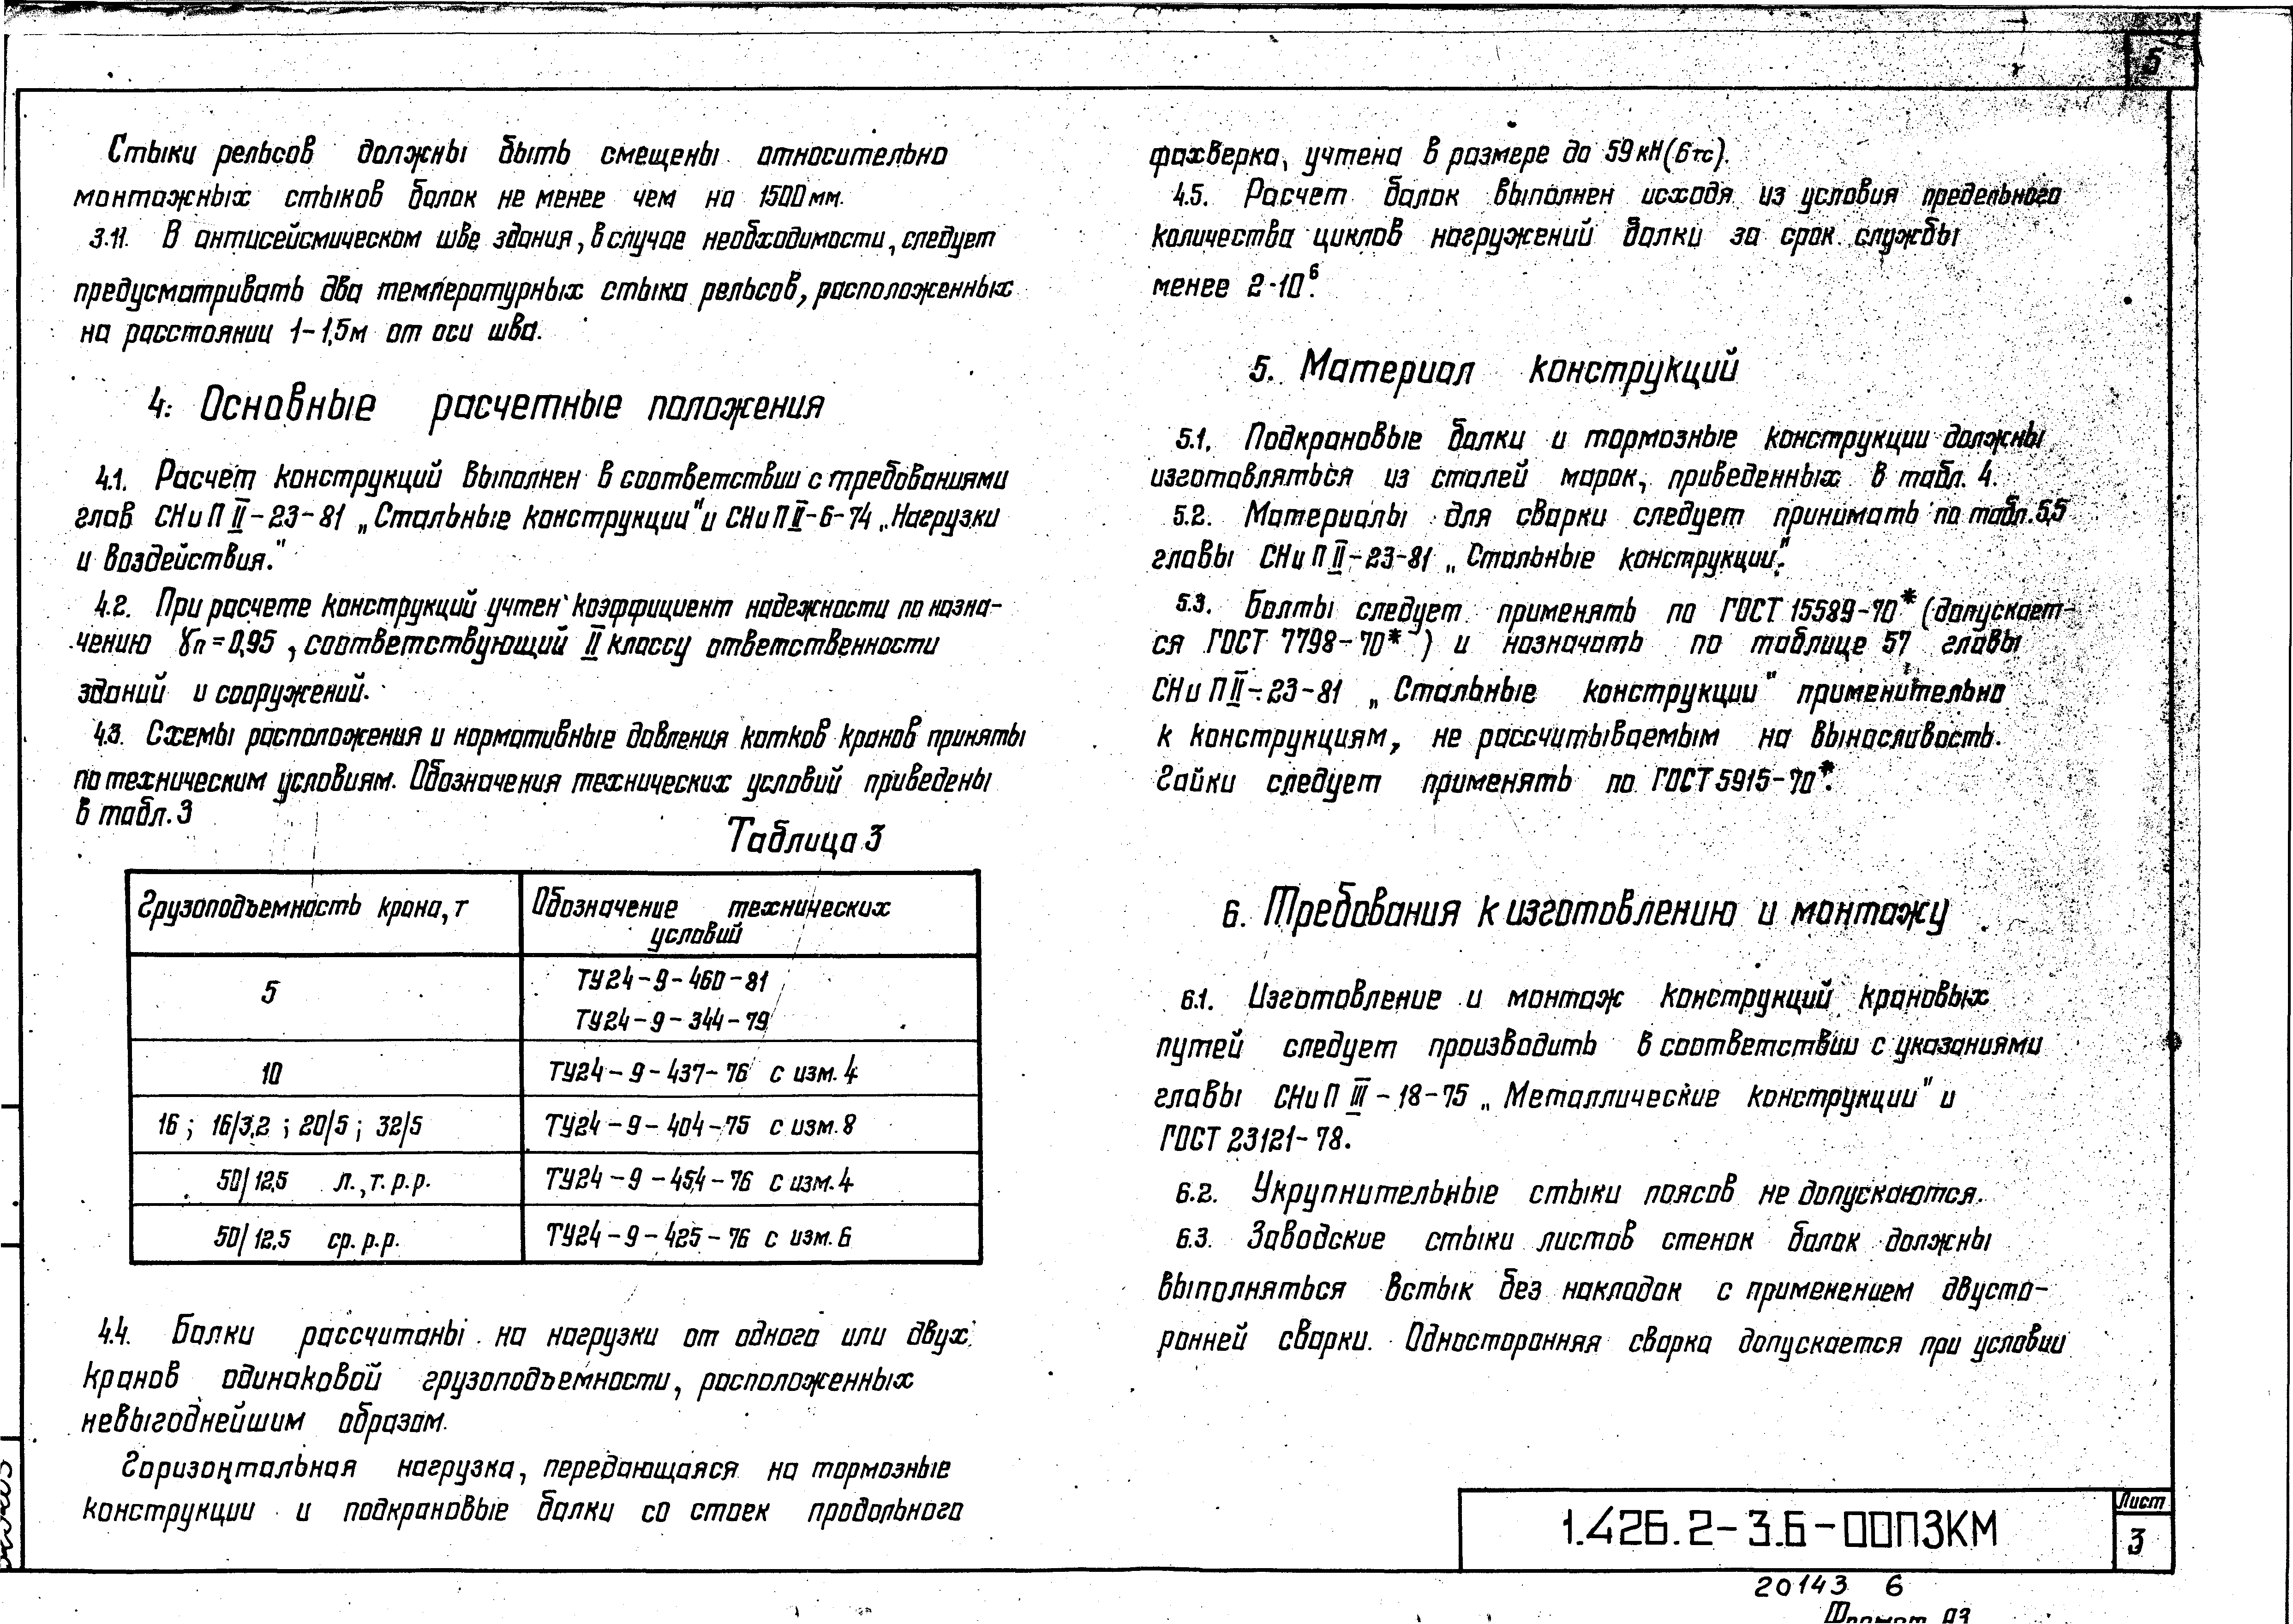 5
Стыки рельсов должны быть смещены относительно
монтажных стыков балок не менее чем на 1500 мм.
3.11. В антисейсмическом шве здания, в случае необходимости, следует
предусматривать два температурных стыка рельсов, расположенных
на расстоянии 1-1,5м от оси шва.
4. Основные расчетные положения
4.1. Расчет конструкций выполнен в соответствии с требованиями
глав СНиП II-23-81 „Стальные конструкции" и СНиП II-6-74 „Нагрузки
и воздействия."
4.2. При расчете конструкций учтен коэффициент надежности по назна-
чению γn=0,95, соответствующий II классу ответственности
зданий и сооружений.
4.3. Схемы расположения и нормативные давления катков кранов приняты
по техническим условиям. Обозначения технических условий приведены
в табл. 3
Таблица 3
Грузоподъемность крана, т
Обозначение технических
условий
5
ТУ24-9-460-81
ТУ24-9-344-79
10
ТУ24-9-437-76 с изм. 4
16; 16/3,2; 20/5; 32/5
ТУ24-9-404-75 с изм. 8
50/12,5 л.,т.р.р.
ТУ24-9-454-76 с изм. 4
50/12,5 ср.р.р.
ТУ24-9-425-76 с изм. 6
4.4. Балки рассчитаны на нагрузки от одного или двух
кранов одинаковой грузоподъемности, расположенных
невыгоднейшим образом.
Горизонтальная нагрузка, передающаяся на тормозные
конструкции и подкрановые балки со стоек продольного
фахверка, учтена в размере до 59 кН (6тс).
4.5. Расчет балок выполнен исходя из условия предельного
количества циклов нагружений балки за срок службы
менее 2·10⁶.
5. Материал конструкций
5.1. Подкрановые балки и тормозные конструкции должны
изготовляться из сталей марок, приведенных в табл. 4.
5.2. Материалы для сварки следует принимать по табл. 55
главы СНиП II-23-81 „Стальные конструкции".
5.3. Болты следует применять по ГОСТ 15589-70* (допускает-
ся ГОСТ 7798-70*) и назначать по таблице 57 главы
СНиП II-23-81 „Стальные конструкции" применительно
к конструкциям, не рассчитываемым на выносливость.
Гайки следует применять по ГОСТ 5915-70*.
6. Требования к изготовлению и монтажу
6.1. Изготовление и монтаж конструкций крановых
путей следует производить в соответствии с указаниями
главы СНиП III-18-75 „Металлические конструкции" и
ГОСТ 23121-78.
6.2. Укрупнительные стыки поясов не допускаются.
6.3. Заводские стыки листов стенок балок должны
выполняться встык без накладок с применением двусто-
ронней сварки. Односторонняя сварка допускается при условии
1.426.2-3.6-00ПЗКМ
Лист
3
20143 6
Формат А3